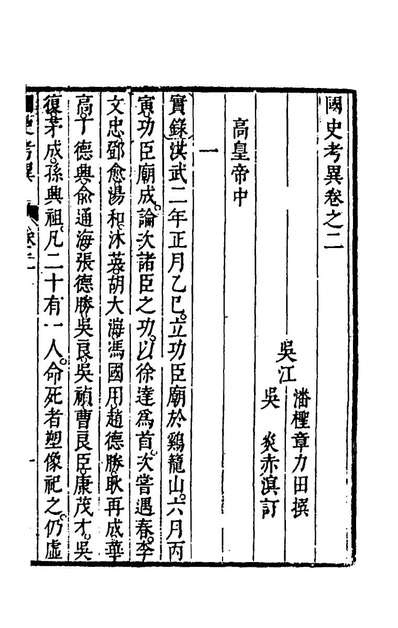 國史考異卷之二
吳江
潘檉章力田撰
吳炎赤溟訂
高皇帝中
一
實錄洪武二年正月乙巳立功臣廟於鷄籠山六月丙
寅功臣廟成論次諸臣之功以徐達為首次嘗遇春李
文忠鄧愈湯和沐英胡大海馮國用趙德勝耿再成華
高丁德興俞通海張德勝吳良吳禎曹良臣康茂才吳
復茅成孫興祖凡二十有一人命死者塑像祀之仍虛
史考異
卷二